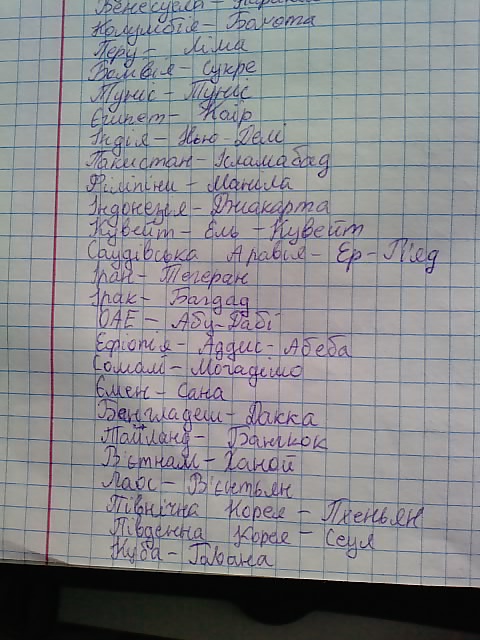 Венесуела - Каракас
Колумбія - Богота
Перу - Ліма
Болівія - Сукре
Туніс - Туніс
Єгипет - Каїр
Індія - Нью-Делі
Пакистан - Ісламабад
Філіпіни - Маніла
Індонезія - Джакарта
Кувейт - Ель-Кувейт
Саудівська Аравія - Ер-Ріяд
Іран - Тегеран
Ірак - Багдад
ОАЕ - Абу-Дабі
Ефіопія - Аддис-Абеба
Сомалі - Могадішо
Ємен - Сана
Бангладеш - Дакка
Таїланд - Бангкок
В'єтнам - Ханой
Лаос - В'єнтьян
Північна Корея - Пхеньян
Південна Корея - Сеул
Куба - Гавана